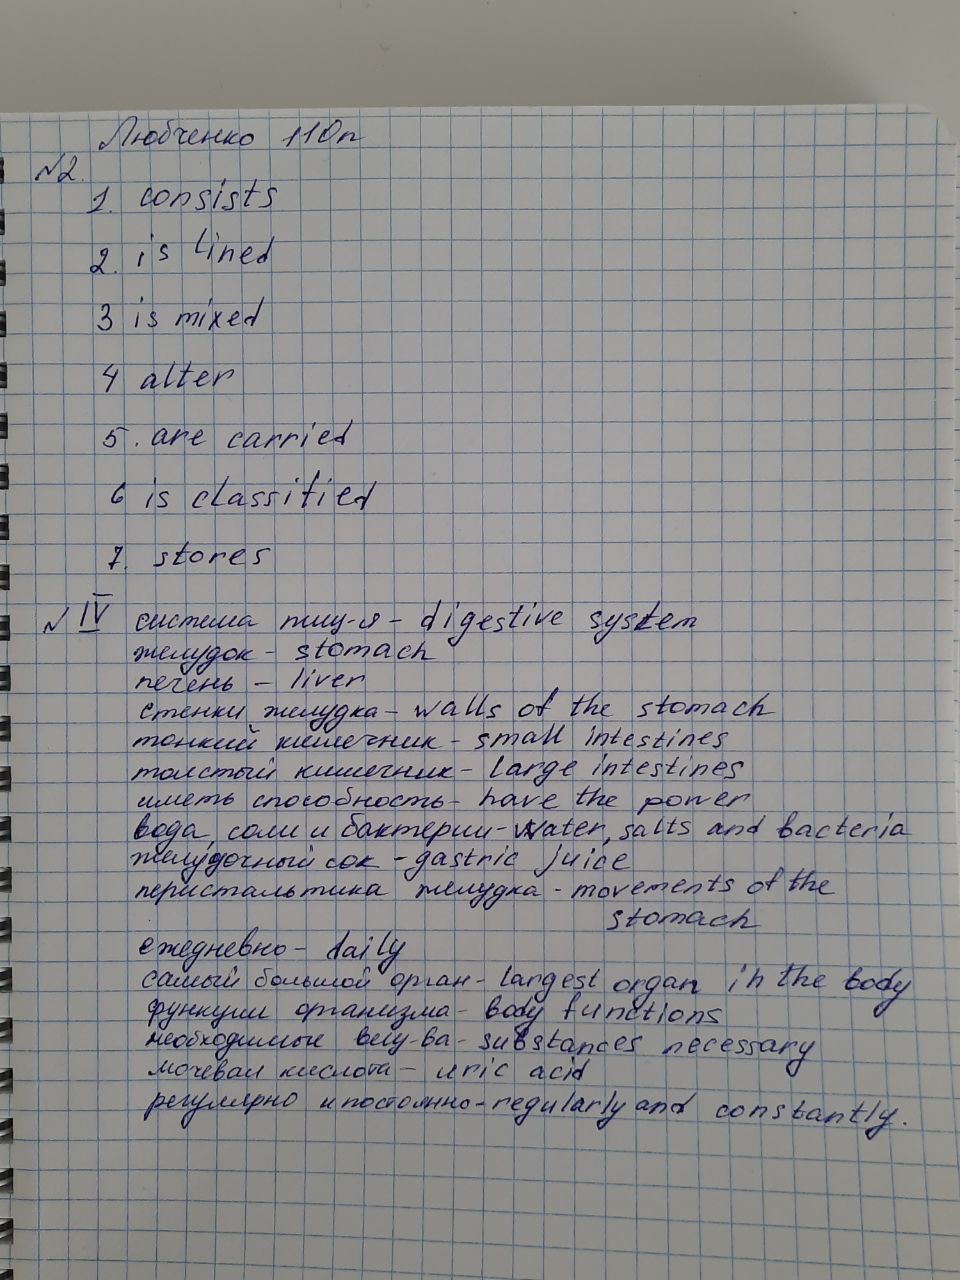 Любченко 110п
№2.
1. consists
2. is lined
3 is mixed
4 alter
5. are carried
6 is classified
7. stores
№ IV система пищ-я - digestive system
желудок - stomach
печень - liver
стенки желудка - walls of the stomach
тонкий кишечник - small intestines
толстый кишечник - large intestines
иметь способность - have the power
вода, соли и бактерии - water, salts and bacteria
желудочный сок - gastric juice
перистальтика желудка - movements of the
stomach
ежедневно - daily
самый большой орган - largest organ in the body
функции организма - body functions
необходимые вещ-ва - substances necessary
мочевая кислота - uric acid
регулярно и постоянно - regularly and constantly.